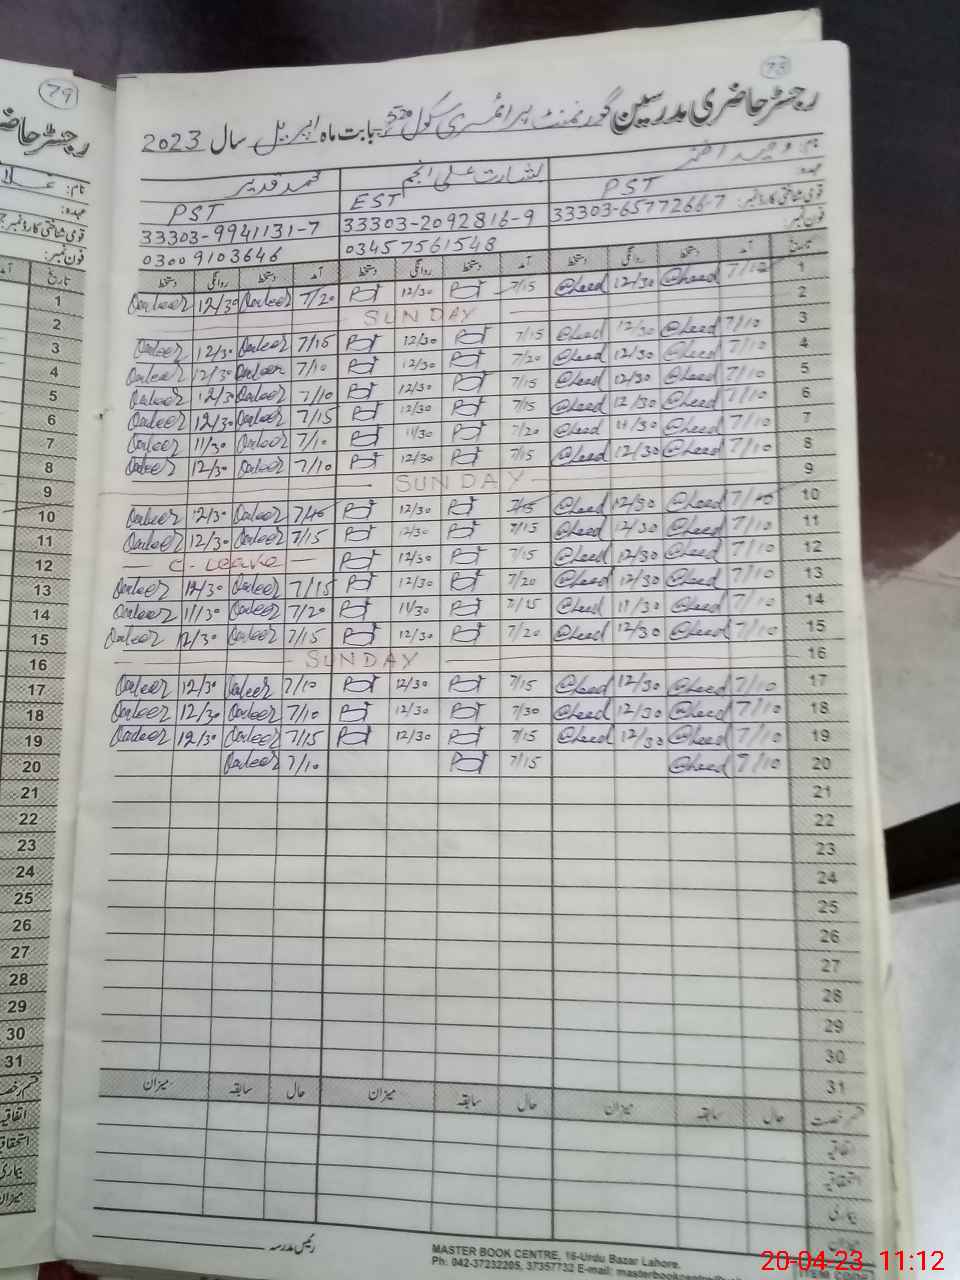 79
73
رجسٹر حاضری مدرسین گورنمنٹ پرائمری سکول 520 بابت ماہ اپریل سال 2023
نام: وحید اظہر بشارت علی انجم محمد قدیر
عہدہ: PST EST PST
قومی شناختی کارڈ نمبر: 33303-6577266-7 33303-2092816-9 33303-9941131-7
فون نمبر: 03457561548 03009103646
تاریخ آمد دستخط روانگی دستخط آمد دستخط روانگی دستخط آمد دستخط روانگی دستخط
1 7/10 @heed 12/30 @heed 7/15 12/30 7/20 Qadeer 12/30 Qadeer
2 SUNDAY
3 7/10 @heed 12/30 @heed 7/15 12/30 7/15 Qadeer 12/30 Qadeer
4 7/10 @heed 12/30 @heed 7/20 12/30 7/10 Qadeer 12/30 Qadeer
5 7/10 @heed 12/30 @heed 7/15 12/30 7/10 Qadeer 12/30 Qadeer
6 7/10 @heed 12/30 @heed 7/15 12/30 7/15 Qadeer 12/30 Qadeer
7 7/10 @heed 11/30 @heed 7/20 11/30 7/10 Qadeer 11/30 Qadeer
8 7/10 @heed 12/30 @heed 7/15 12/30 7/10 Qadeer 12/30 Qadeer
9 SUNDAY
10 @heed 12/30 @heed 12/30 Qadeer 12/30 Qadeer
11 7/10 @heed 12/30 @heed 7/15 12/30 7/15 Qadeer 12/30 Qadeer
12 7/10 @heed 12/30 @heed 7/15 12/30 C-Leave
13 7/10 @heed 12/30 @heed 7/20 12/30 7/15 Qadeer 12/30 Qadeer
14 7/10 @heed 11/30 @heed 7/15 11/30 7/20 Qadeer 11/30 Qadeer
15 7/10 @heed 12/30 @heed 7/20 12/30 7/15 Qadeer 12/30 Qadeer
16 SUNDAY
17 7/10 @heed 12/30 @heed 7/15 12/30 7/10 Qadeer 12/30 Qadeer
18 7/10 @heed 12/30 @heed 7/30 12/30 7/10 Qadeer 12/30 Qadeer
19 7/10 @heed 12/30 @heed 7/15 12/30 7/15 Qadeer 12/30 Qadeer
20 7/10 @heed 7/15 7/10 Qadeer
21
22
23
24
25
26
27
28
29
30
31
قسم رخصت حال سابقہ میزان حال سابقہ میزان حال سابقہ میزان
اتفاقیہ
استحقاقیہ
بیماری
میزان
رئیس مدرسہ
MASTER BOOK CENTRE, 16-Urdu Bazar Lahore.
Ph: 042-37232205, 37357732 E-mail:
رجسٹر
نام:
عہدہ:
قومی شناختی کارڈ نمبر:
فون نمبر:
تاریخ
1
2
3
4
5
6
7
8
9
10
11
12
13
14
15
16
17
18
19
20
21
22
23
24
25
26
27
28
29
30
31
بیماری
میزان
20-04-23 11:12